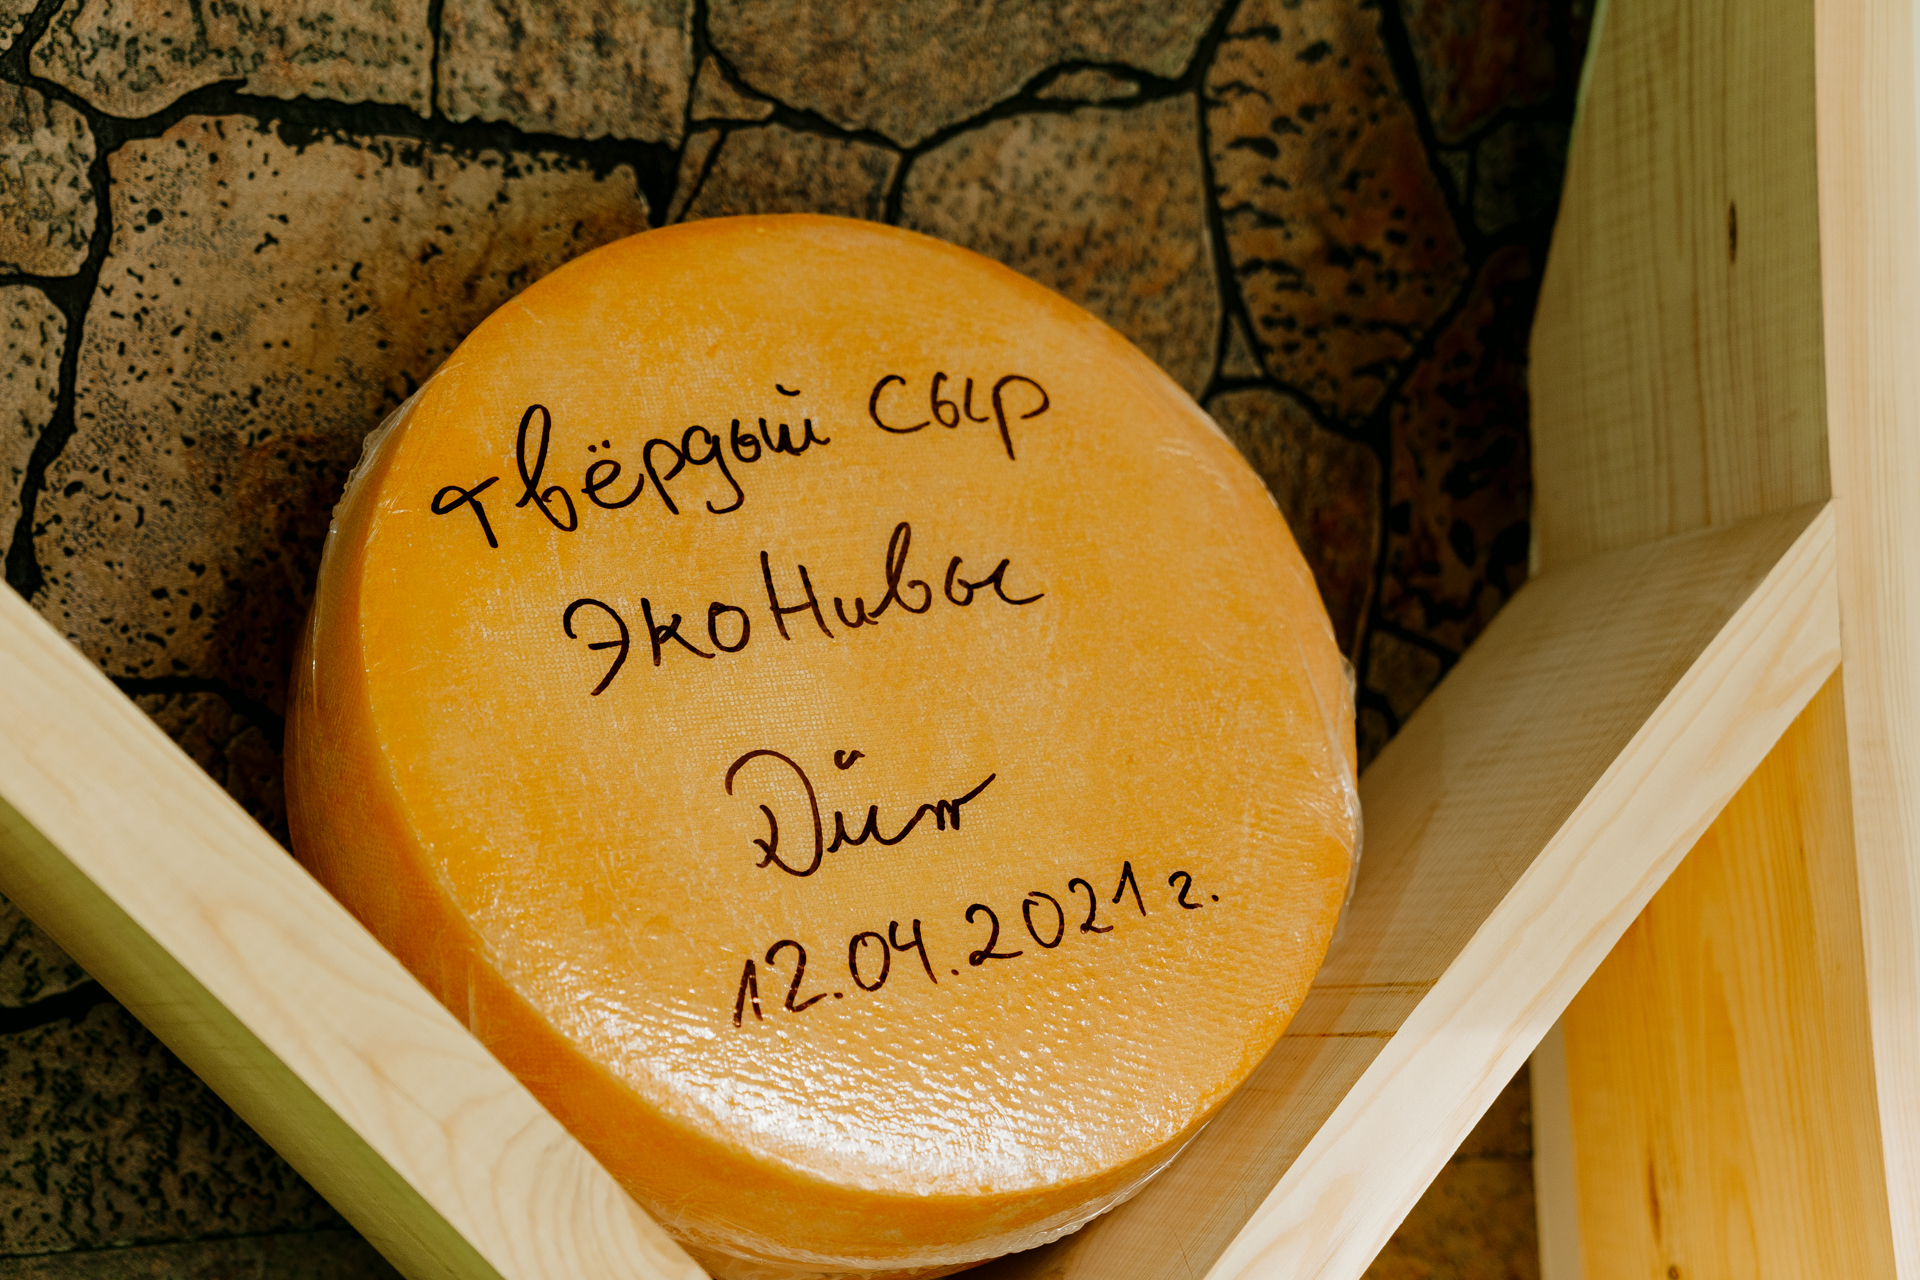 твёрдый сыр
ЭкоНивы
12.04.2021 г.